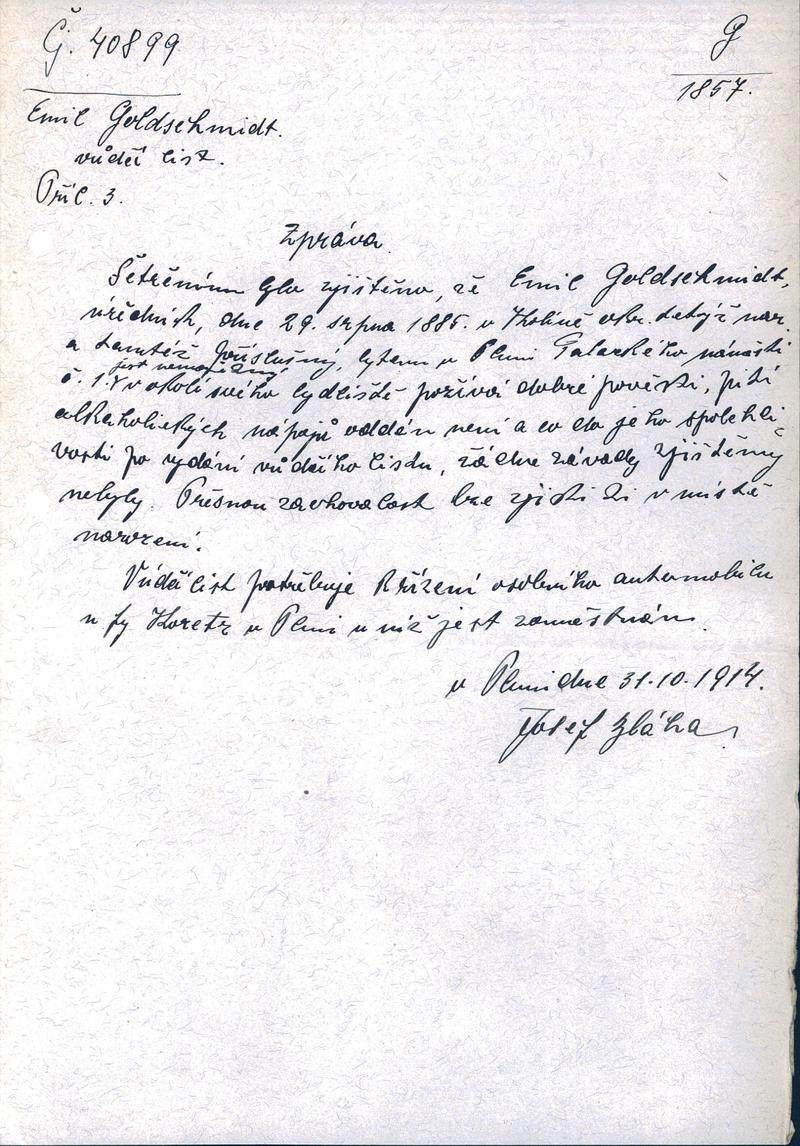 Čj. 40899
G
1857.
Emil Goldschmidt.
vůdčí list.
Příl. 3.
Zpráva
Šetřením bylo zjištěno, že Emil Goldschmidt,
úředník, dne 29. srpna 1885. v Kolíně okr. tatýž nar.
a tamtéž příslušný, bytem v Plzni náměstí
jest nemajetný,
č. 1. v okolí svého bydliště požívá dobré pověsti, pití
alkoholických nápojů oddán není a co do jeho spolehli-
vosti po vydání vůdčího listu, žádné závady zjištěny
nebyly. Přesnou zachovalost lze zjisti ti v místě
narození.
Vůdčí list potřebuje k řízení osobního automobilu
u fy Koretz v Plzni u níž jest zaměstnán.
v Plzni dne 31.10.1914.
Josef Bláha